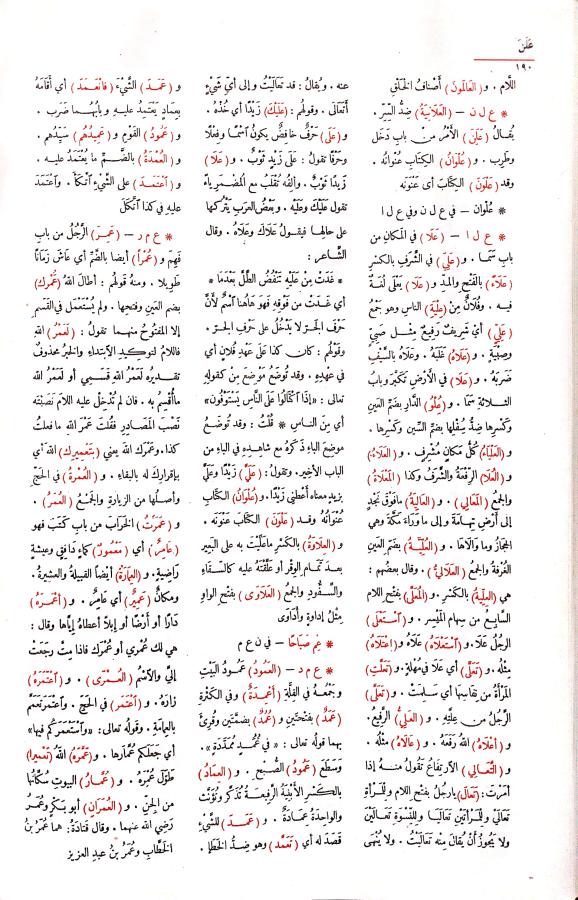 عَلَنَ
١٩٠
اللَّام . و (العَالَمُونَ) أَصْنَافُ الخَلْقِ
* ع ل ن – (العَلَانِيَةُ) ضِدُّ السِّرِّ .
يُقَالُ (عَلَنَ) الأَمْرُ من بابِ دَخَلَ
وطَرِبَ . و (عُلْوَانُ) الكِتَابِ عُنْوَانُهُ .
وقد (عَلْوَنَ) الكِتَابَ أى عَنْوَنَهُ
* عُلْوان – في ع ل ن وفي ع ل ا
* ع ل ا – (عَلَا) في المَكَانِ من
بابِ سَمَا . و (عَلِيَ) في الشَّرَفِ بالكَسْرِ
(عَلَاءً) بالفَتْحِ والمَدِّ و (عَلَا) يَعْلَى لُغَةٌ
فيه . وفُلَانٌ مِنْ (عِلْيَةِ) النَّاسِ وهو جَمْعُ
(عَلِيٍّ) أيْ شَرِيفٌ رَفِيعٌ مِثْل صَبِيٍّ
وصِبْيَةٍ . و (عَلَاهُ) غَلَبَهُ . وعَلَاهُ بالسَّيْفِ
ضَرَبَهُ . و (عَلَا) في الأَرْضِ تَكَبَّرَ وبابُ
الثلاثةِ سَمَا . و (عُلْوُ) الدَّارِ بضَمِّ العَينِ
وكَسْرِهَا ضِدُّ سُفْلِهَا بضَمِّ السِّينِ وكَسْرِهَا .
و (العَلْيَاءُ) كُلُّ مَكَانٍ مُشْرِفٍ . و (العَلَاءُ)
و (العُلَا) الرِّفْعَةُ والشَّرَفُ وكذا (المَعْلَاةُ)
والجمعُ (المَعَالِي) . و (العَالِيَةُ) مافَوْقَ نَجْدٍ
إلى أَرْضِ تِهَامَةَ وإلى ما وَرَاءَ مَكَّةَ وهي
الحِجَازُ وما وَالَاهَا . و (العُلِّيَّةُ) بضَمِّ العَينِ
الغُرْفَةُ والجمعُ (العَلَالِيُّ) . وقال بعضُهم :
هي (العِلِّيَّةُ) بالكَسْرِ . و (المُعَلَّى) بفَتْحِ اللام
السَّابِعُ من سِهَامِ المَيْسِرِ . و (اسْتَعْلَى)
الرجُلُ عَلَا . و (اسْتَعْلَاهُ) عَلَاهُ و (اعْتَلَاهُ)
مِثْلُه . و (تَعَلَّى) أي عَلَا في مُهْلَةٍ . و (تَعَلَّتِ)
المَرْأَةُ من نِفَاسِهَا أيْ سَلِمَتْ . و (تَعَلَّى)
الرَّجُلُ من عِلَّتِهِ . و (العَلِيُّ) الرَّفِيعُ .
و (أَعْلَاهُ) اللهُ رَفَعَهُ . و (عَالَاهُ) مثلُه .
و (التَّعَالِي) الارْتِفَاعُ تَقُولُ مِنْهُ إذا
أَمَرْتَ : (تَعَالَ) يارجُلُ بفَتْحِ اللامِ وللمَرْأَةِ
تَعَالَيْ وللمَرْأَتَيْنِ تَعَالَيَا وللنِّسْوَةِ تَعَالَيْنَ
ولا يجُوزُ أَنْ يُقَالَ مِنْه تَعَالَيْتُ . ولا يُنْهَى
عنه . ويُقَالُ : قد تَعَالَيْتُ و إلى أيِّ شَيْءٍ
أَتَعَالَى . وقولُهم : (عَلَيْكَ) زَيْدًا أيْ خُذْهُ .
و (عَلَى) حَرْفٌ خافِضٌ يكونُ اسْمًا وفِعْلًا
وحَرْفًا تقولُ : عَلَى زَيْدٍ ثَوْبٌ . و (عَلَا)
زَيْدًا ثَوْبٌ . وألِفُهُ تُقْلَبُ مع المُضْمَرِ ياءً
تقول عَلَيْكَ وعَلَيْهِ . وبَعْضُ العَرَبِ يَتْرُكُها
على حالِها فيقولُ عَلَاكَ وعَلَاهُ . وقال
الشَّاعِر :
* غَدَتْ مِنْ عَلَيْهِ تَنْفُضُ الطَّلَّ بَعْدَمَا *
أي غَدَتْ من فَوْقِهِ فهو هَاهُنا اسْمٌ لأَنَّ
حَرْفَ الجَرِّ لا يَدْخُلُ على حَرْفِ الجرِّ .
وقولُهم : كان كذا عَلَى عَهْدِ فُلانٍ أي
في عَهْدِهِ . وقد تُوضَعُ مَوْضِعَ مِنْ كقولِهِ
تعالى : «إذَا اكْتَالُوا عَلَى النَّاسِ يَسْتَوْفُونَ»
أي مِنَ النَّاسِ * قُلْتُ : وقد تُوضَعُ
موضِعَ الباءِ ذَكَرَهُ مع شاهِدِهِ في الباءِ من
البابِ الأَخيرِ . وتقُولُ : (عَلَيَّ) زَيْدًا وعَلَيَّ
بزيدٍ معناه أَعْطِنِي زَيْدًا . و (عُلْوَانُ) الكِتَابِ
عُنْوَانُهُ وقد (عَلْوَنَ) الكتابَ عَنْوَنَه .
و (العِلَاوَةُ) بالكَسْرِ ماعَلَّيْتَ به على البَعِيرِ
بعدَ تَمَامِ الوِقْرِ أو عَلَّقْتَهُ عليه كالسِّقَاءِ
والسَّفُّودِ والجمعُ (العَلَاوَى) بفتحِ الواوِ
مِثْلُ إداوةٍ وأَدَاوَى
* عِمْ صَبَاحًا – في ن ع م
* ع م د – (العَمُودُ) عَمُودُ البَيْتِ
وجَمْعُهُ في القِلَّةِ (أَعْمِدَةٌ) وفي الكَثْرَةِ
(عَمَدٌ) بفَتْحَتين و (عُمُدٌ) بضَمَّتين وقُرِئَ
بهما قولُه تعالى : «في عَمَدٍ مُمَدَّدَةٍ» .
وسَطَعَ (عَمُودُ) الصُّبْحِ . و (العِمَادُ)
بالكَسْرِ الأَبْنِيَةُ الرَّفِيعَةُ تُذَكَّرُ وتُؤَنَّثُ
والواحِدَةُ عِمَادَةٌ . و (عَمَدَ) للشَّيْءِ
قَصَدَ له أي (تَعَمَّدَ) وهو ضِدُّ الخَطَإِ .
و (عَمَدَ) الشَّيْءَ (فَانْعَمَدَ) أي أَقَامَهُ
بعِمَادٍ يَعْتَمِدُ عليهِ و بابُهما ضَرَبَ .
و (عَمُودُ) القَوْمِ و (عَمِيدُهُم) سَيِّدُهم .
و (العُمْدَةُ) بالضَّمِّ ما يُعْتَمَدُ عليه .
و (اعْتَمَدَ) على الشَّيْءِ اتَّكَأَ . واعْتَمَدَ
عليهِ في كذا اتَّكَلَ
* ع م ر – (عَمِرَ) الرَّجُلُ من بابِ
فَهِمَ و (عُمْرًا) أيضا بالضَّمِّ أي عاشَ زَمَانًا
طَوِيلا . ومنهُ قولُهم : أطالَ اللهُ (عُمْرَكَ)
بضم العَينِ وفتحِها . ولم يُسْتَعْمَل في القَسَمِ
إلا المفتوحُ منهما تقولُ : (لَعَمْرُ) اللهِ
فاللامُ لتوكيدِ الابْتِداءِ والخَبَرُ محذوفٌ
تقديره لَعَمْرُ اللهِ قَسَمِي أو لَعَمْرُ اللهِ
ماأُقْسِمُ به . فان لم تُدْخِلْ عليه اللامَ نَصَبْتَه
نَصْبَ المَصَادِرِ فقُلْتَ عَمْرَ اللهِ ما فعلتُ
كذا . وعَمْرَكَ اللهَ يعني (بتَعْمِيرِكَ) اللهَ أي
بإِقْرَارِكَ له بالبَقَاءِ . و (العُمْرَةُ) في الحَجِّ
وأَصْلُها من الزيارةِ والجَمْعُ (العُمَرُ) .
و (عَمَرْتُ) الخَرَابَ من بابِ كَتَبَ فهو
(عَامِرٌ) أي (مَعْمُورٌ) كماءٍ دَافِقٍ وعِيشةٍ
رَاضِيةٍ . و (العِمَارَةُ) أيضًا القَبِيلةُ والعشيرةُ .
ومكانٌ (عَمِيرٌ) أي عَامِرٌ . و (أَعْمَرَهُ)
دَارًا أو أَرْضًا أو إبِلاً أعطاهُ إيَّاها وقال :
هي لك عُمْرِي أو عُمْرَكَ فإذا مِتَّ رَجَعَتْ
إليَّ والاسْمُ (العُمْرَى) . و (اعْتَمَرَهُ)
زارَهُ . و (اعْتَمَرَ) في الحَجِّ . واعْتَمَرَ تَعَمَّمَ
بالعِمَامَةِ . وقولُه تعالى : «وَاسْتَعْمَرَكُمْ فِيهَا»
أي جَعَلَكم عُمَّارَها . و (عَمَّرَهُ) اللهُ (تَعْمِيرًا)
طَوَّلَ عُمُرَهُ . و (عُمَّارُ) البيوتِ سُكَّانُها
من الجِنِّ . و (العُمَرَانِ) أبو بَكْرٍ وعُمَرُ
رَضِيَ اللهُ عنهما . وقال قَتَادَةُ : هما عُمَرُ بنُ
الخَطَّابِ وعُمَرُ بنُ عبدِ العزيز